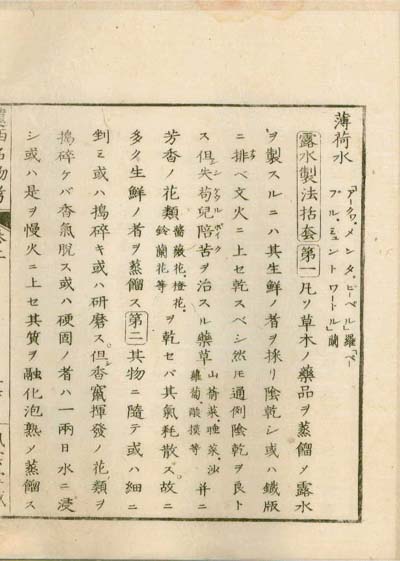 薄荷水「アークア、メンタ、ピーペル」羅「ペープルミュントワートル」蘭
露水製法括套 第一 凡ソ草木ノ藥品ヲ蒸餾メ露水
ヲ製スルニハ其生鮮ノ者ヲ採リ陰乾シ或ハ鐵版
ニ排ベ文火ニ上セ乾スベシ然𪜈通例陰乾ヲ良ト
ス但失苟兒陪苦ヲ治スル藥草 山葵菜、睡菜、沙蘿蔔、酸摸等 并ニ
芳香ノ花類 薔薇花、橙花、鈴蘭花等 ヲ乾セバ其氣耗散ス故ニ
多ク生鮮ノ者ヲ蒸餾ス 第二 其物ニ隨テ或ハ細ニ
剉ミ或ハ搗碎キ或ハ研磨ス但香竄揮發ノ花類ヲ
搗碎ケバ香氣脱ス或ハ硬固ノ者ハ一兩日水ニ浸
シ或ハ是ヲ慢火ニ上セ其質ヲ融化泡熟メ蒸餾ス
名物考